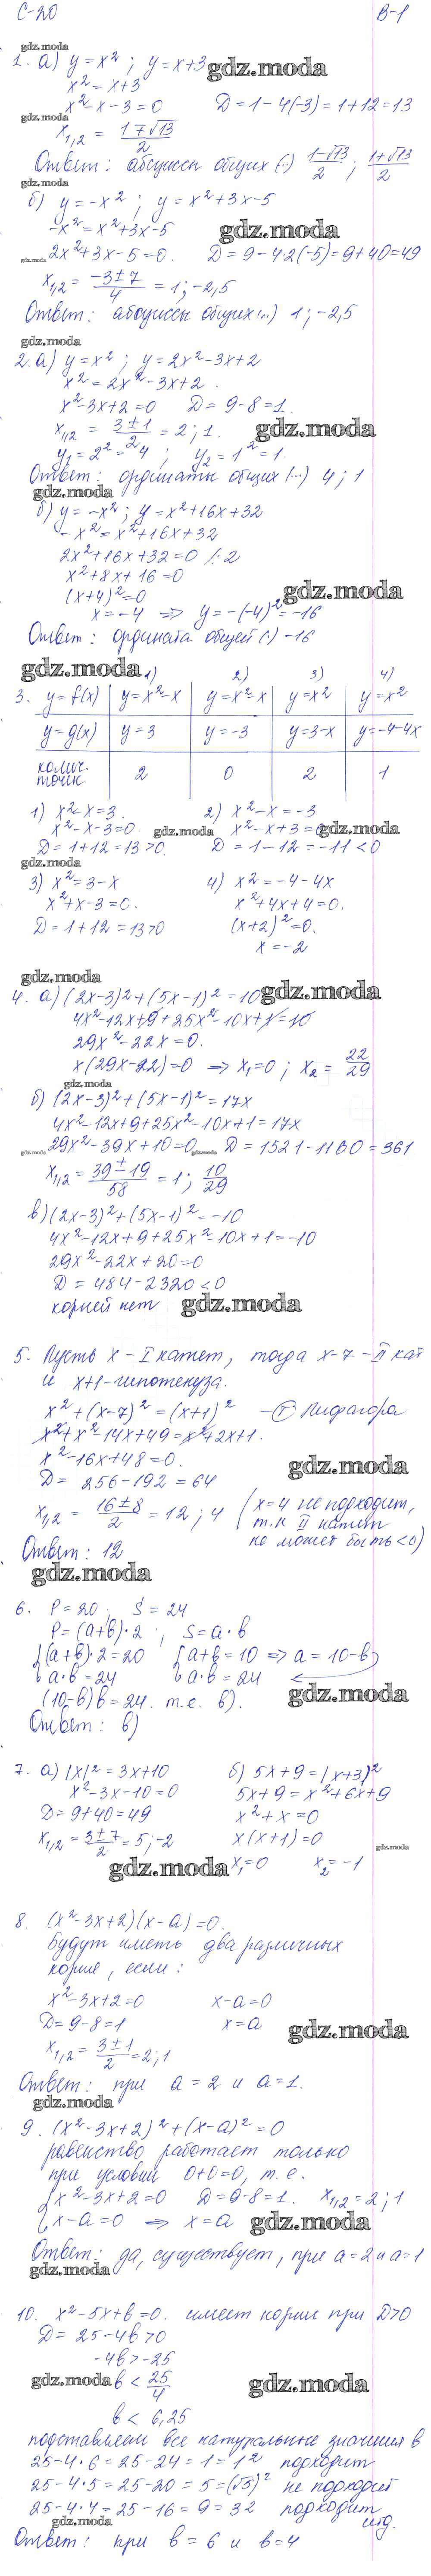 С-20 В-1
1. а) y = x² ; y = x+3
x² = x+3
x² - x - 3 = 0 D = 1 - 4(-3) = 1+12 = 13
x₁,₂ = (1 ∓ √13)/2
Ответ: абсциссы общих (·) (1-√13)/2 ; (1+√13)/2
б) y = -x² ; y = x² + 3x - 5
-x² = x² + 3x - 5
2x² + 3x - 5 = 0. D = 9 - 4·2(-5) = 9+40 = 49
x₁,₂ = (-3 ± 7)/4 = 1 ; -2,5
Ответ: абсциссы общих (..) 1 ; -2,5
2. а) y = x² ; y = 2x² - 3x + 2
x² = 2x² - 3x + 2 .
x² - 3x + 2 = 0 D = 9 - 8 = 1.
x₁,₂ = (3 ± 1)/2 = 2 ; 1.
y₁ = 2² = 4 ; y₂ = 1² = 1.
Ответ: ординаты общих (...) 4 ; 1
б) y = -x² ; y = x² + 16x + 32
-x² = x² + 16x + 32
2x² + 16x + 32 = 0 /:2
x² + 8x + 16 = 0
(x+4)² = 0
x = -4 ⇒ y = -(-4)² = -16
Ответ: ордината общей (·) -16
1) 2) 3) 4)
3. y = f(x) y = x² - x y = x² - x y = x² y = x²
y = g(x) y = 3 y = -3 y = 3-x y = -4-4x
колич. точек 2 0 2 1
1) x² - x = 3. 2) x² - x = -3
x² - x - 3 = 0. x² - x + 3 = 0
D = 1+12 = 13 > 0. D = 1 - 12 = -11 < 0
3) x² = 3 - x 4) x² = -4 - 4x
x² + x - 3 = 0. x² + 4x + 4 = 0.
D = 1+12 = 13 > 0 (x+2)² = 0.
x = -2
4. а) (2x-3)² + (5x-1)² = 10
4x² - 12x + 9 + 25x² - 10x + 1 = 10
29x² - 22x = 0.
x(29x - 22) = 0 ⇒ x₁ = 0 ; x₂ = 22/29
б) (2x-3)² + (5x-1)² = 17x
4x² - 12x + 9 + 25x² - 10x + 1 = 17x
29x² - 39x + 10 = 0 D = 1521 - 1160 = 361
x₁,₂ = (39 ± 19)/58 = 1 ; 10/29
в) (2x-3)² + (5x-1)² = -10
4x² - 12x + 9 + 25x² - 10x + 1 = -10
29x² - 22x + 20 = 0
D = 484 - 2320 < 0
корней нет
5. Пусть x - I катет, тогда x-7 - II кат
и x+1 - гипотенуза.
x² + (x-7)² = (x+1)² - Т Пифагора
x² + x² - 14x + 49 = x² + 2x + 1.
x² - 16x + 48 = 0.
D = 256 - 192 = 64
x₁,₂ = (16 ± 8)/2 = 12 ; 4 (x = 4 не подходит,
т.к II катет
не может быть < 0)
Ответ: 12
6. P = 20 ; S = 24
P = (a+b)·2 ; S = a·b
{(a+b)·2 = 20 {a+b = 10 ⇒ a = 10-b
a·b = 24 a·b = 24
(10-b)b = 24. т.е. в).
Ответ: в)
7. а) |x|² = 3x+10 б) 5x+9 = (x+3)²
x² - 3x - 10 = 0 5x+9 = x² + 6x + 9
D = 9+40 = 49 x² + x = 0
x₁,₂ = (3 ± 7)/2 = 5 ; -2 x(x+1) = 0
x₁ = 0 x₂ = -1
8. (x² - 3x + 2)(x - a) = 0.
будут иметь два различных
корня, если:
x² - 3x + 2 = 0 x - a = 0
D = 9 - 8 = 1 x = a
x₁,₂ = (3 ± 1)/2 = 2 ; 1
Ответ: при a = 2 и a = 1.
9. (x² - 3x + 2)² + (x - a)² = 0
равенство работает только
при условии 0+0=0, т.е.
{x² - 3x + 2 = 0 D = 9-8 = 1. x₁,₂ = 2 ; 1
x - a = 0 ⇒ x = a
Ответ: да, существует, при a = 2 и a = 1
10. x² - 5x + b = 0. имеет корни при D > 0
D = 25 - 4b > 0
-4b > -25
b < 25/4
b < 6,25
подставляем все натуральные значения b
25 - 4·6 = 25 - 24 = 1 = 1² подходит
25 - 4·5 = 25 - 20 = 5 = (√5)² не подходит
25 - 4·4 = 25 - 16 = 9 = 3² подходит
итд.
Ответ: при b = 6 и b = 4
gdz.moda